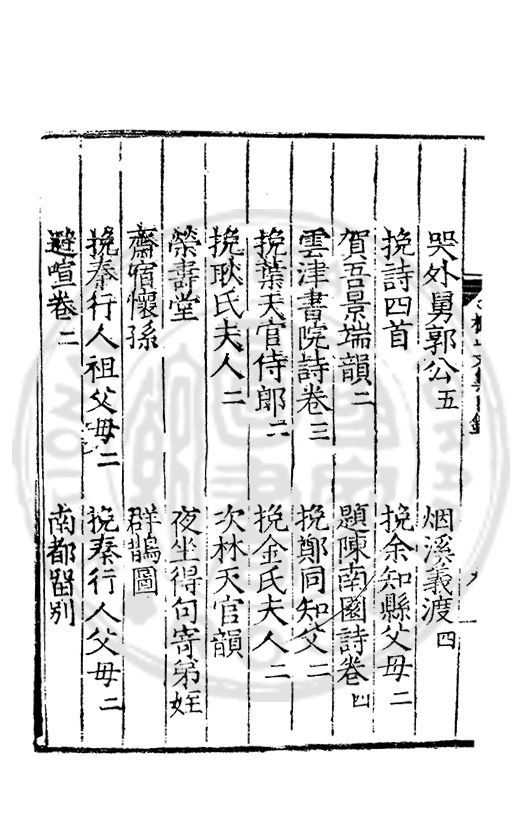 哭外舅郭公五　烟溪義渡四
挽詩四首　挽余知縣父母二
賀吾景端韻二　題陳南園詩卷四
雲津書院詩卷三　挽鄭同知父二
挽葉天官侍郎二　挽金氏夫人二
挽耿氏夫人二　次林天官韻
榮壽堂　夜坐得句寄第姪
齋宿懷孫　群鵲圖
挽秦行人祖父母二　挽秦行人父母二
避喧卷二　南都留別